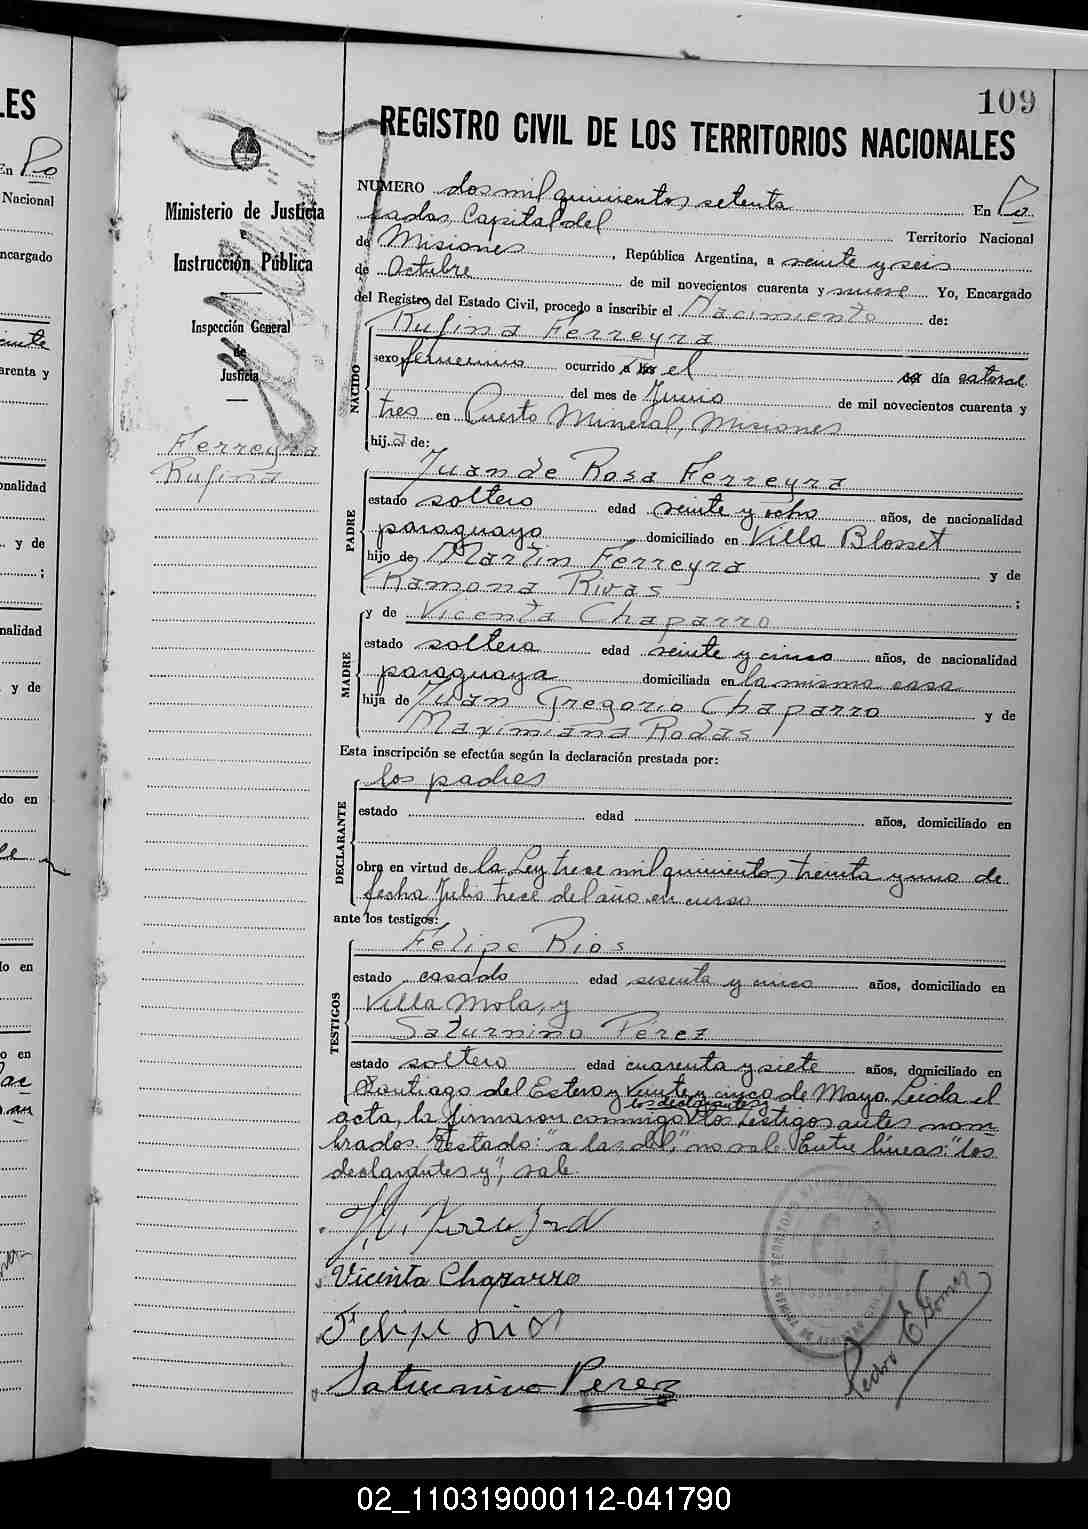 109
REGISTRO CIVIL DE LOS TERRITORIOS NACIONALES
Ministerio de Justicia
e
Instrucción Pública
Inspección General
de
Justicia
Ferreyra
Rufina
NUMERO dos mil quinientos setenta En Po
sadas, Capital del Territorio Nacional
de Misiones, República Argentina, a veinte y seis
de Octubre de mil novecientos cuarenta y nueve Yo, Encargado
del Registro del Estado Civil, procedo a inscribir el Nacimiento de:
Rufina Ferreyra
NACIDO
sexo femenino ocurrido a las el del día catorce
del mes de Junio de mil novecientos cuarenta y
tres en Puerto Mineral, Misiones
hija de:
Juan de Rosa Ferreyra
PADRE
estado soltero edad veinte y ocho años, de nacionalidad
paraguayo domiciliado en Villa Blosset
hijo de Martin Ferreyra y de
Ramona Rivas ;
y de Vicenta Chaparro
MADRE
estado soltera edad veinte y cinco años, de nacionalidad
paraguaya domiciliada en la misma casa
hija de Juan Gregorio Chaparro y de
Maximiana Rodas
Esta inscripción se efectúa según la declaración prestada por:
los padres
DECLARANTE
estado edad años, domiciliado en
obra en virtud de la Ley trece mil quinientos treinta y uno de
fecha Julio trece del año en curso
ante los testigos:
Felipe Rios
TESTIGOS
estado casado edad sesenta y cinco años, domiciliado en
Villa Mola, y
Saturnino Perez
estado soltero edad cuarenta y siete años, domiciliado en
Santiago del Estero y Veinte y cinco de Mayo. Leida el
los declarantes y
acta, la firmaron conmigo los testigos antes nom-
brados. Testado: "a las, del," no vale. Entre líneas: "los
declarantes y", vale.
Vicenta Chaparro
Felipe Rios
Saturnino Perez
Pedro E. Gomez
02_110319000112-041790